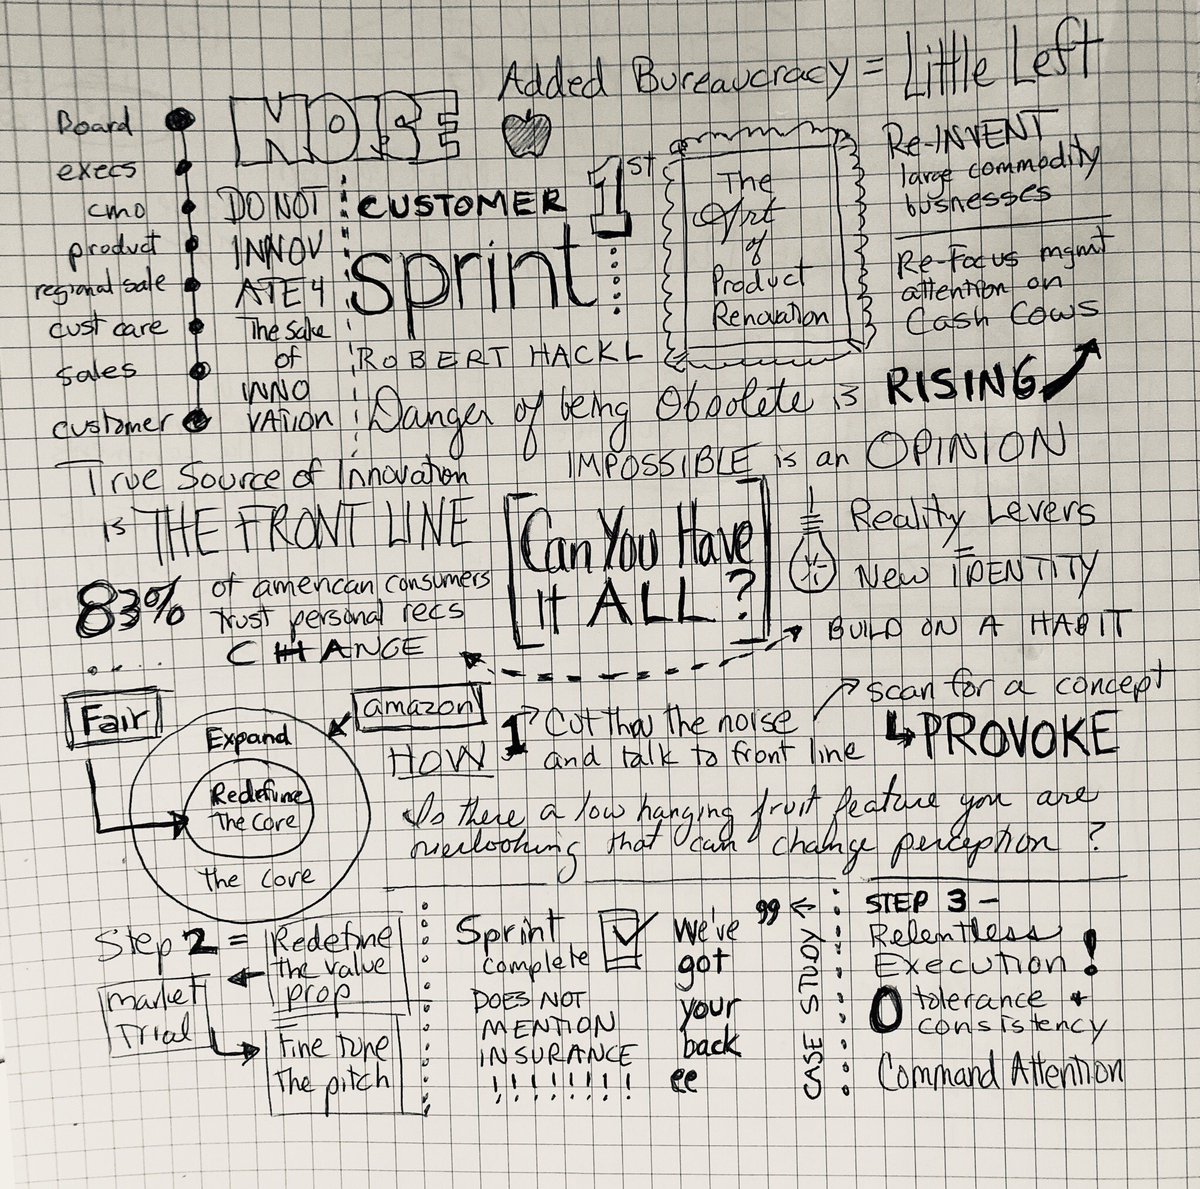 Added Bureaucracy = Little Left
Board
execs
cmo
product
regional sale
cust care
sales
customer
NOBE
DO NOT
INNOV
ATE 4
The sake
of
INNO
VATION
CUSTOMER 1ST
sprint
ROBERT HACKL
The
Art
of
Product
Renovation
Re-INVENT
large commodity
busnesses
Re-Focus mgmt
attention on
Cash Cows
Danger of being Obsolete is RISING
True Source of Innovation
is THE FRONT LINE
IMPOSSIBLE is an OPINION
83% of american consumers
trust personal recs
CHANGE
[Can You Have
it ALL?]
Reality Levers
=
New IDENTITY
BUILD ON A HABIT
Fair
amazon
Expand
Redefine
The Core
The Core
HOW 1 Cut thru the noise
and talk to front line
scan for a concept
PROVOKE
Is there a low hanging fruit feature you are
overlooking that can change perception?
Step 2 = Redefine
The value
prop
market
Trial
Fine tune
The pitch
Sprint
complete
DOES NOT
MENTION
INSURANCE
!!!!!!!!
We've
got
your
back
CASE STUDY
STEP 3 -
Relentless
Execution!
0 tolerance +
consistency
Command Attention